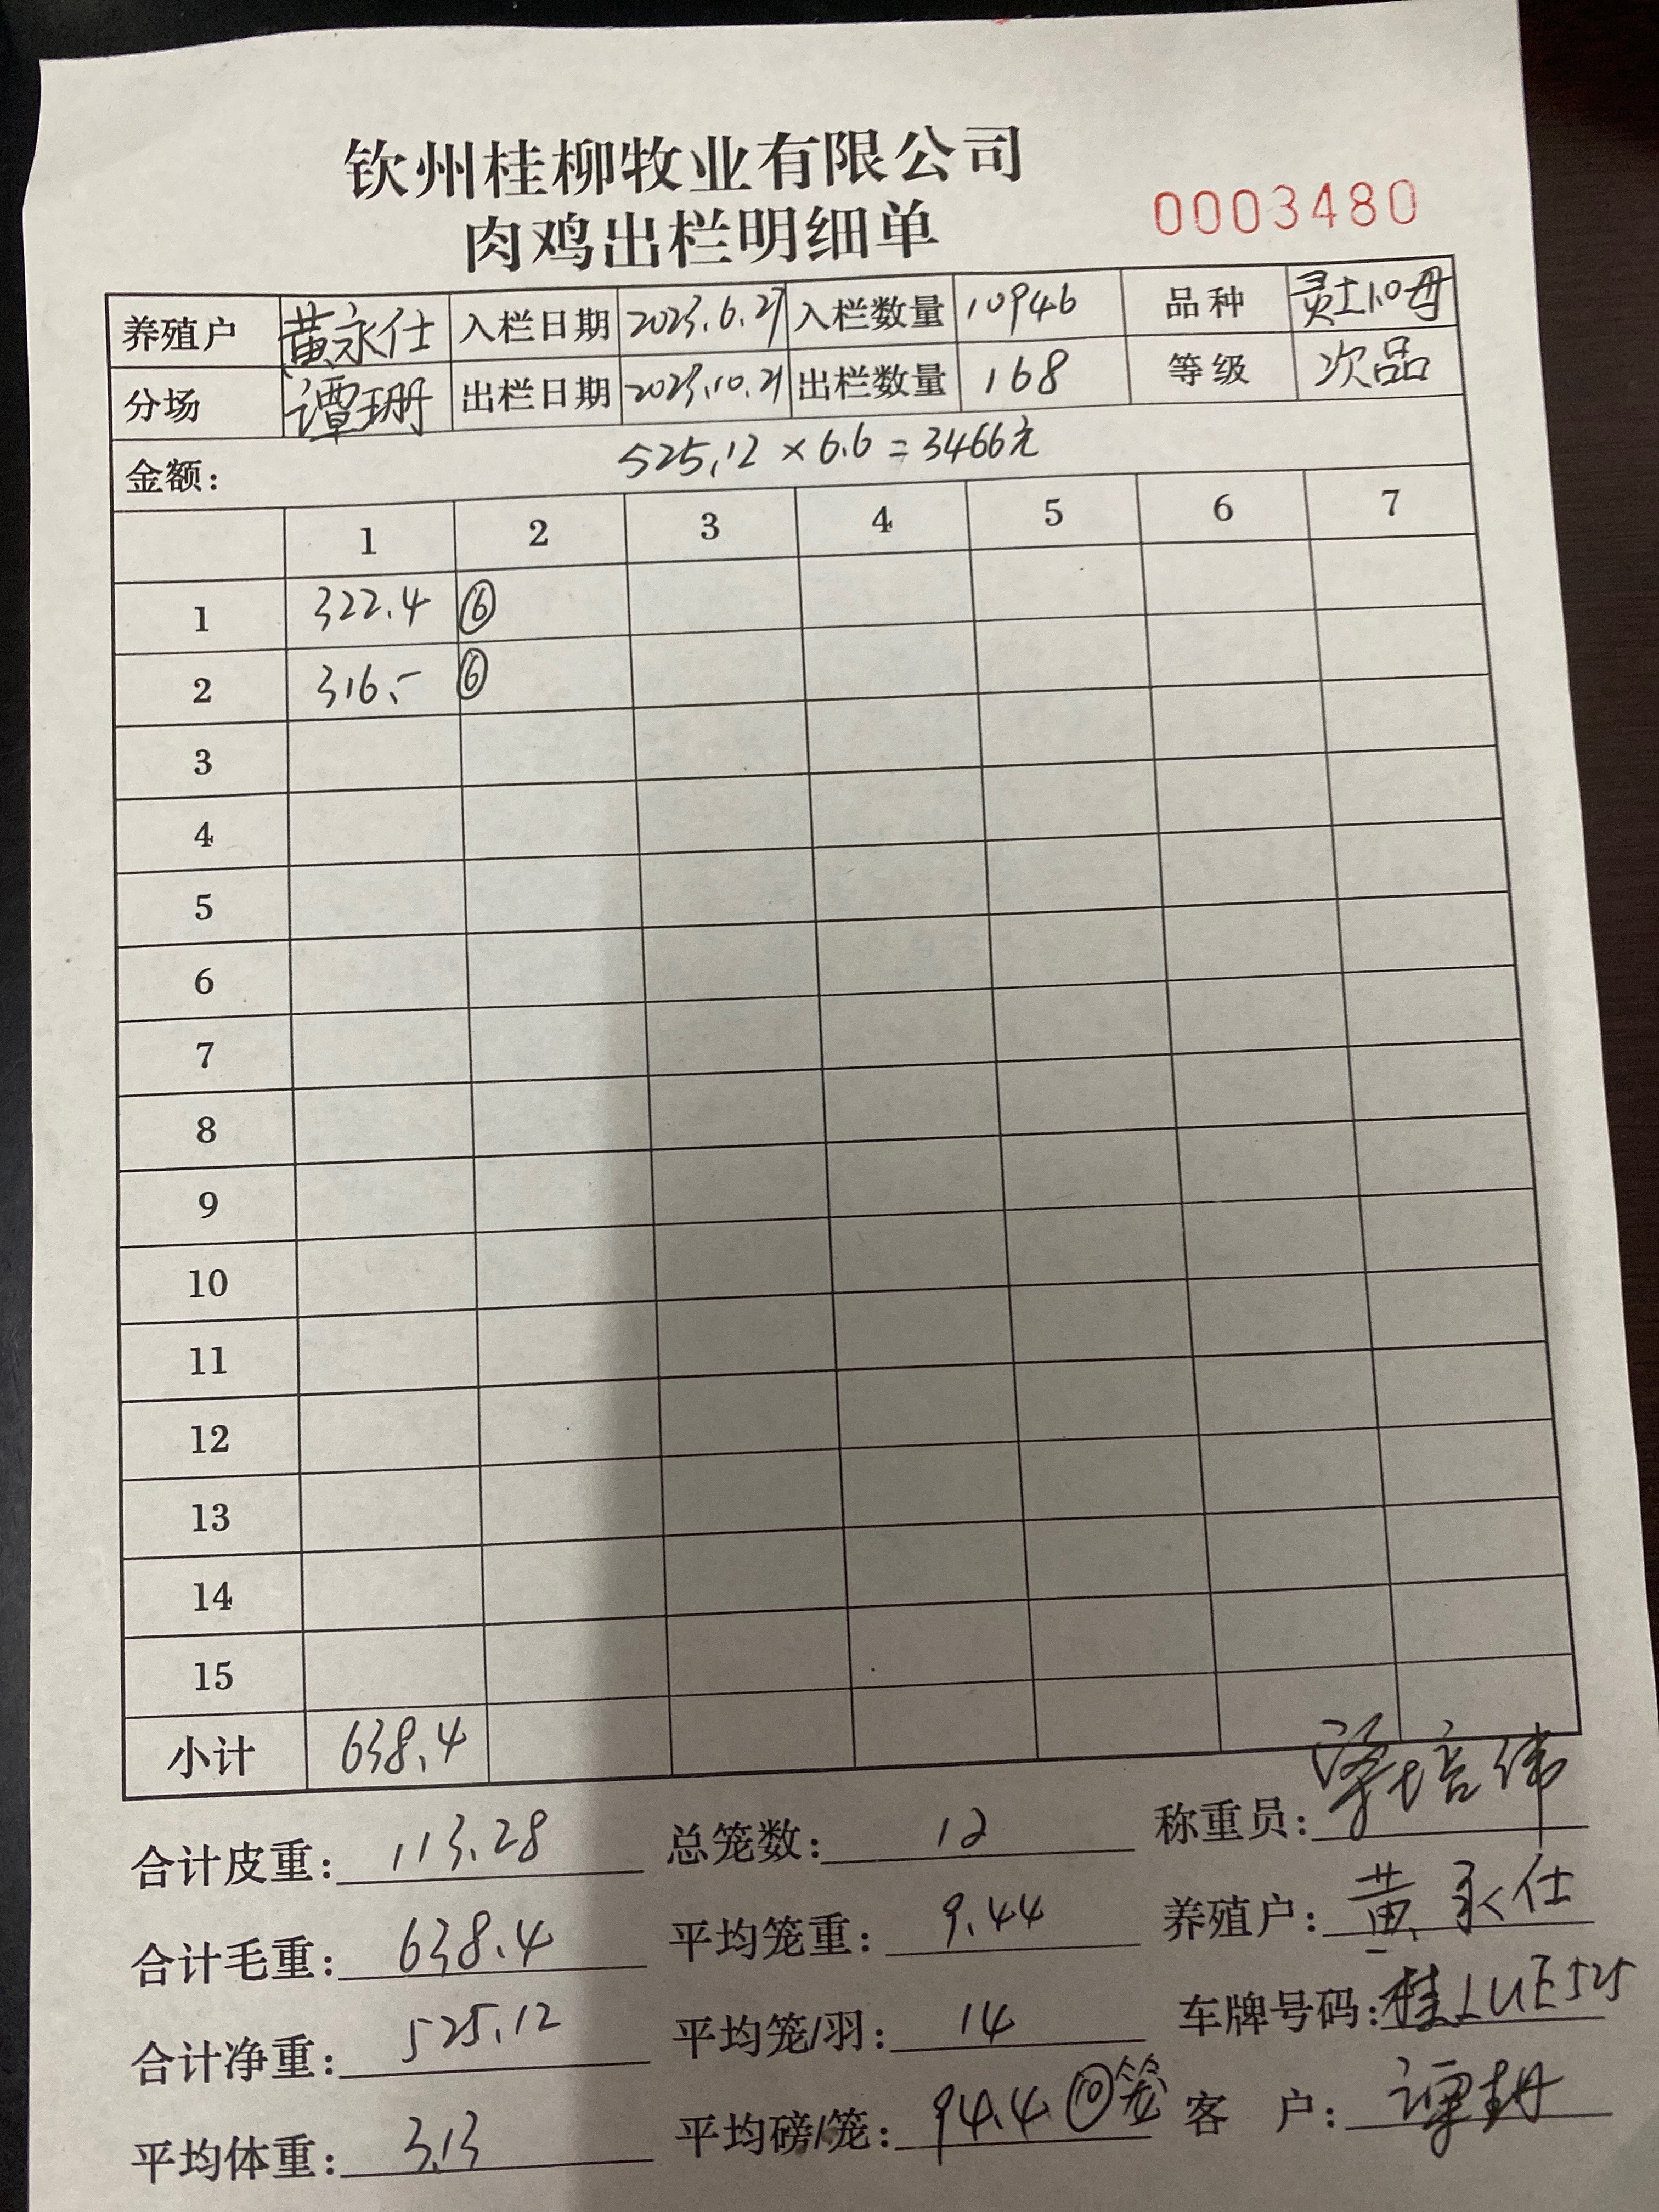 钦州桂柳牧业有限公司
肉鸡出栏明细单
0003480
养殖户 黄永仕 入栏日期 2023.6.27 入栏数量 10946 品种 灵土1.0母
分场 谭珊 出栏日期 2023.10.21 出栏数量 168 等级 次品
金额: 525.12×6.6=3466元
1 2 3 4 5 6 7
1 322.4 ⑥
2 316.- ⑥
3
4
5
6
7
8
9
10
11
12
13
14
15
小计 638.4
合计皮重: 113.28 总笼数: 12 称重员: 梁培伟
合计毛重: 638.4 平均笼重: 9.44 养殖户: 黄永仕
合计净重: 525.12 平均笼/羽: 14 车牌号码: 桂LUE525
平均体重: 3.13 平均磅/笼: 94.4 ⑩笼 客 户: